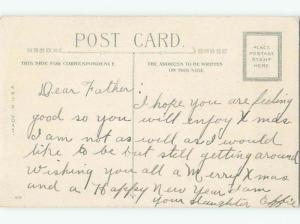 POST CARD.
THIS SIDE FOR CORRESPONDENCE
THE ADDRESS TO BE WRITTEN
ON THIS SIDE.
PLACE
POSTAGE
STAMP
HERE
MADE IN U.S.A.
Dear Father:
I hope you are feeling
good so you will enjoy Xmas
I am not as well as I would
like to be but still getting around
Wishing you all a Merry Xmas
and a Happy New Year I am
your Daughter Effie